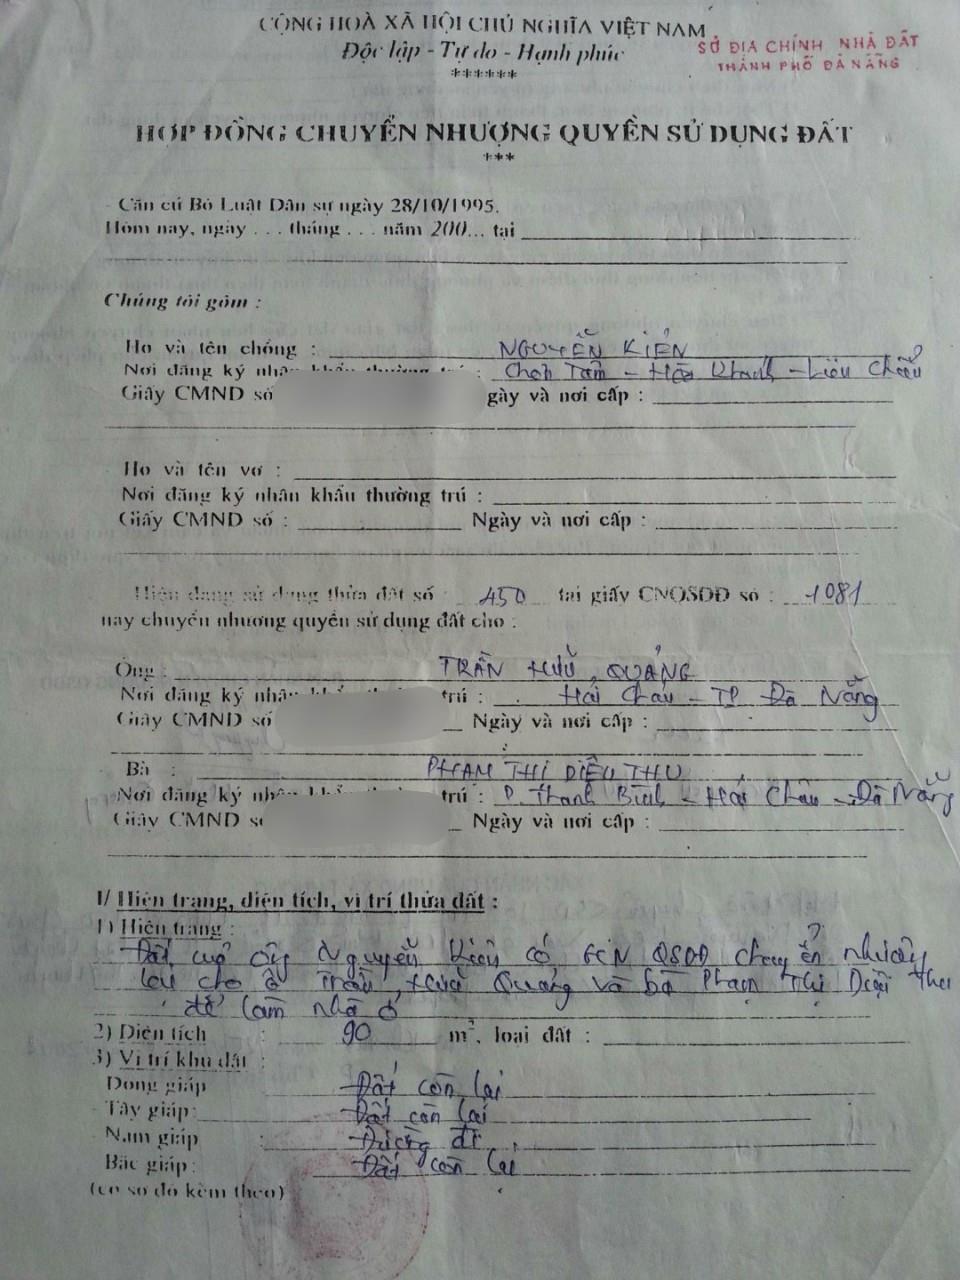 CỘNG HOÀ XÃ HỘI CHỦ NGHĨA VIỆT NAM
Độc lập - Tự do - Hạnh phúc
******
SỞ ĐỊA CHÍNH NHÀ ĐẤT
THÀNH PHỐ ĐÀ NẴNG
HỢP ĐỒNG CHUYỂN NHƯỢNG QUYỀN SỬ DỤNG ĐẤT
***
- Căn cứ Bộ Luật Dân sự ngày 28/10/1995.
Hôm nay, ngày . . . tháng . . . năm 200... tại
Chúng tôi gồm :
Họ và tên chồng : NGUYỄN KIÊN
Nơi đăng ký nhân khẩu thường trú : Tâm - Hòa Khánh - Liên Chiểu
Giấy CMND số gày và nơi cấp :
Họ và tên vợ :
Nơi đăng ký nhân khẩu thường trú :
Giấy CMND số : Ngày và nơi cấp :
Hiện đang sử dụng thửa đất số 450 tại giấy CNQSDĐ số : 1081
nay chuyển nhượng quyền sử dụng đất cho :
Ông : TRẦN HỮU QUẢNG
Nơi đăng ký nhân trú : Hải Châu - TP Đà Nẵng
Giấy CMND số Ngày và nơi cấp :
Bà : PHẠM THỊ DIỆU THU
Nơi đăng ký nhân trú : P. Thanh Bình - Hải Châu - Đà Nẵng
Giấy CMND số Ngày và nơi cấp :
I/ Hiện trạng, diện tích, vị trí thửa đất :
1) Hiện trạng :
Đất của ông Nguyễn Kiên có GCN QSDĐ chuyển nhượng
lại cho ô Trần Hữu Quảng và bà Phạm Thị Diệu Thu
để làm nhà ở
2) Diện tích : 90 m², loại đất :
3) Vị trí khu đất :
Đông giáp Đất còn lại
- Tây giáp: Đất còn lại
- Nam giáp : Đường đi
Bắc giáp : Đất còn lại
(có sơ đồ kèm theo)